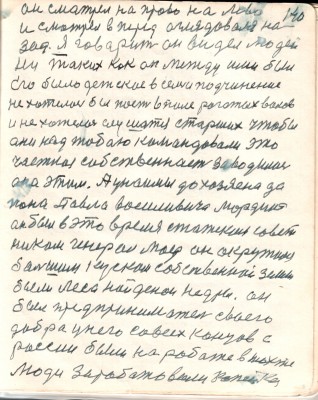 он смотрел на право на лово 140
и смотрел в перед оглядовался на
зад. Я говарит он видел людей
таких как он между ими были
Его было детское в семи подчинение
не хотелось бы пости в поле рогатых валов
и не хотелось слушать старших чтобы
они над тобою командовали это
частная собственнает заводилась
она этим. А унаимы до хозяена да
пона Павла восиливича
он был в это время статский совет
ником генерол майор он окружил
балшим куском собственной земли
были леса найденои недры. он
был предприниматель своего
добра у него совсех концов с
россии были на работе в
люди Зарабатовали копейку